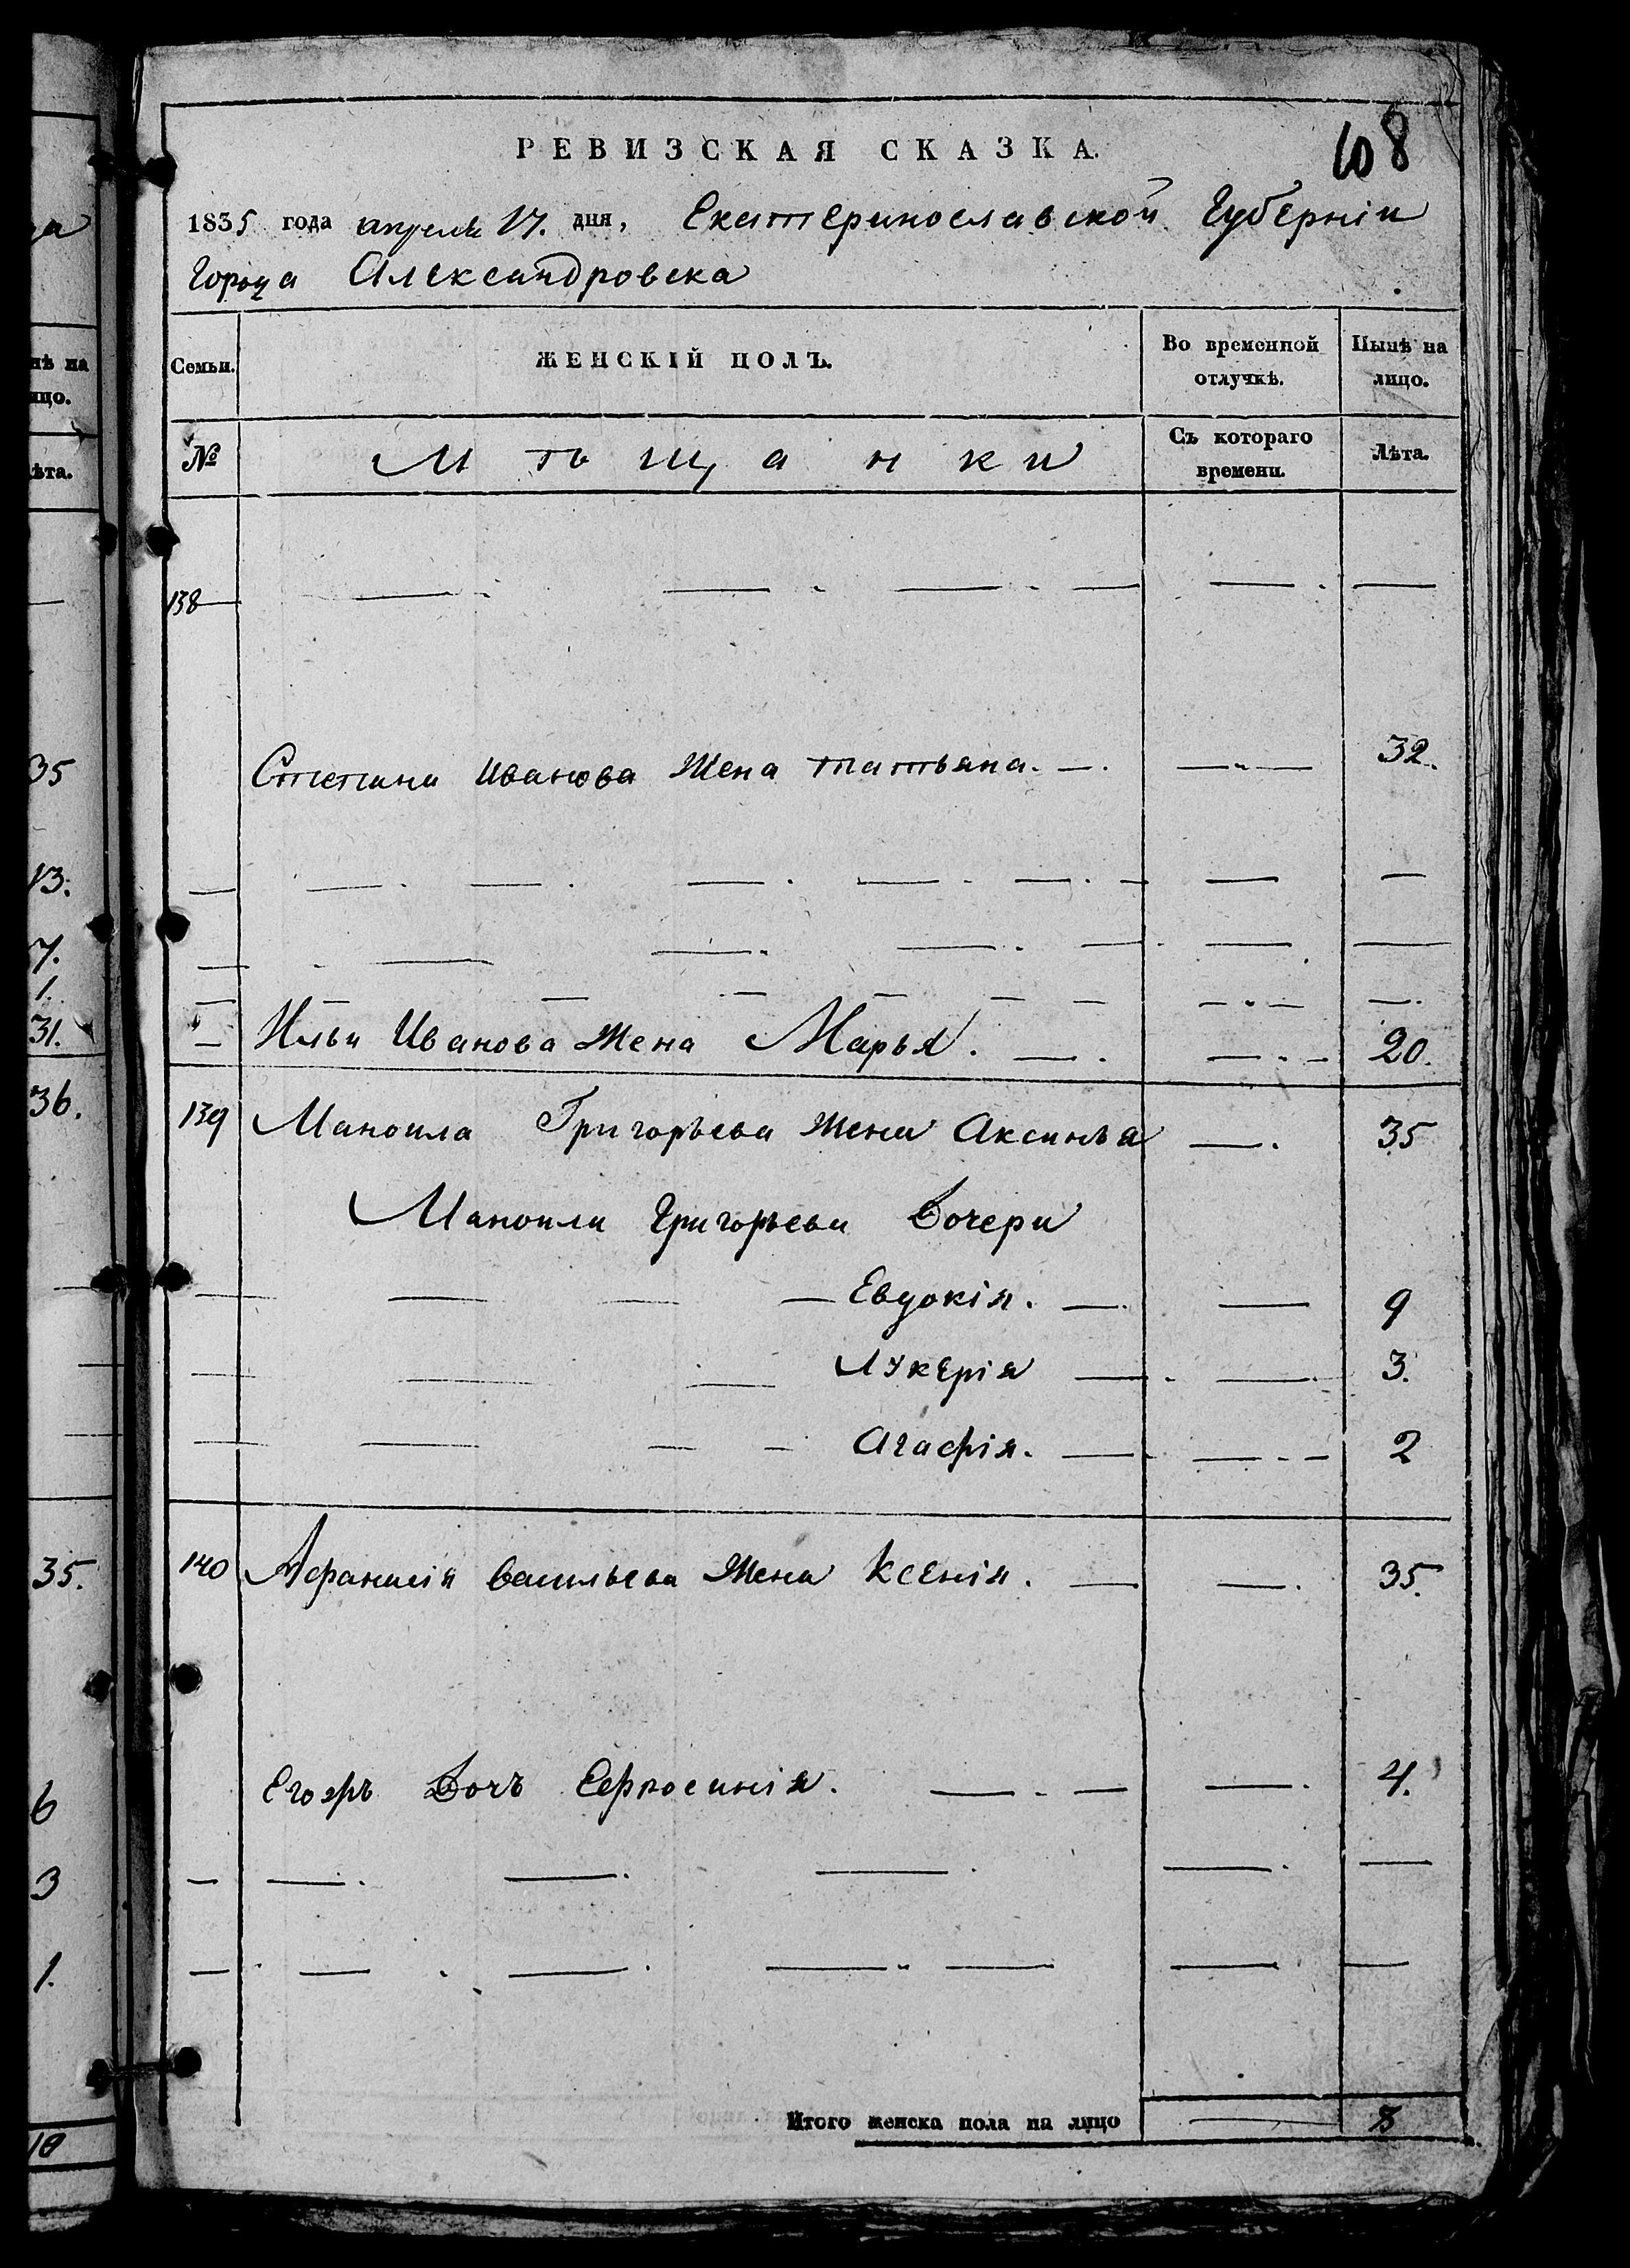 РЕВИЗСКАЯ СКАЗКА.
108
1835 года апреля 17. дня, Екатеринославской Губерніи
Города Александровска
Семьи. ЖЕНСКІЙ ПОЛЪ. Во временной отлучкѣ. Нынѣ на лицо.
№ Мѣщанки Съ котораго времени. Лѣта.
138
Степана Иванова Жена татьяна. 32.
Ильи Иванова Жена Марья. 20.
139 Маноила Григорьева Жена Аксинья 35
Маноила Григорьева Дочери
Евдокія. 9
Лукерія 3.
Агафія. 2
140 Афанасія Васильева Жена Ксенія. 35.
Егоръ Дочь Ефросинія. 4.
Итого женска пола на лицо 8
нѣ на
ицо.
ѣта.
35
13.
7.
1.
31.
36.
35.
6
3
1.
10